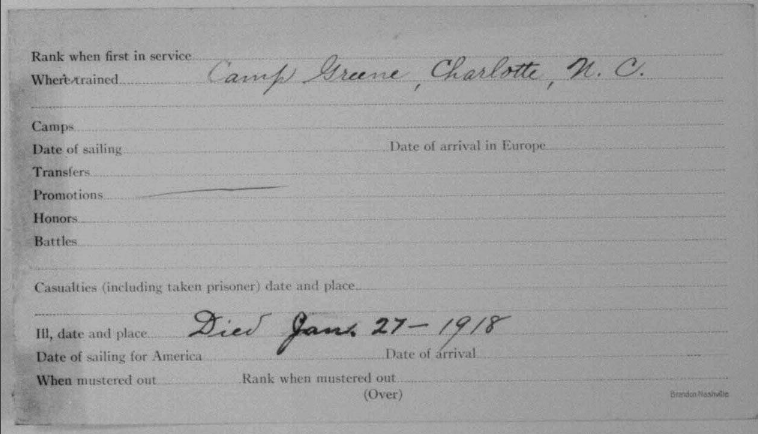 Rank when first in service
Where trained Camp Greene, Charlotte, N. C.
Camps
Date of sailing Date of arrival in Europe
Transfers
Promotions
Honors
Battles
Casualties (including taken prisoner) date and place
Ill, date and place Died Jan. 27 – 1918
Date of sailing for America Date of arrival
When mustered out Rank when mustered out
(Over)
Brandon Nashville